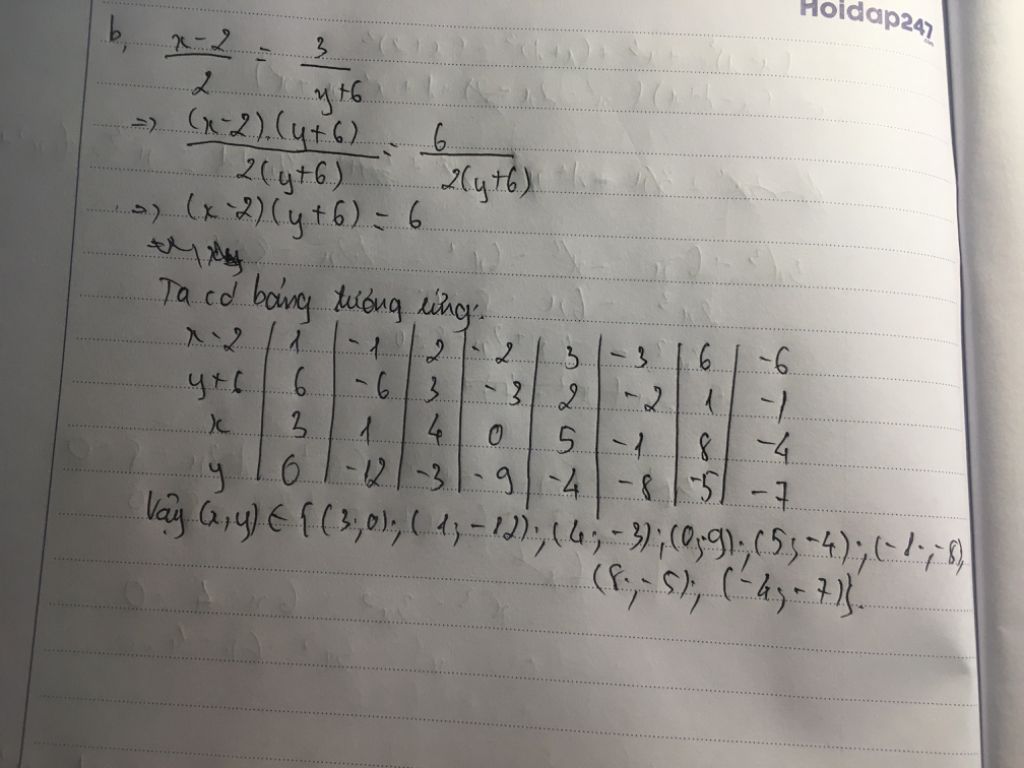 Hoidap247
b, x-2 / 2 = 3 / y+6
=> (x-2).(y+6) / 2(y+6) = 6 / 2(y+6)
=> (x-2)(y+6) = 6
Ta có bảng tương ứng:
x-2 | 1 | -1 | 2 | -2 | 3 | -3 | 6 | -6
y+6 | 6 | -6 | 3 | -3 | 2 | -2 | 1 | -1
x | 3 | 1 | 4 | 0 | 5 | -1 | 8 | -4
y | 0 | -12 | -3 | -9 | -4 | -8 | -5 | -7
Vậy (x,y) ∈ {(3;0);(1;-12);(4;-3);(0;-9);(5;-4);(-1;-8);
(8;-5);(-4;-7)}.